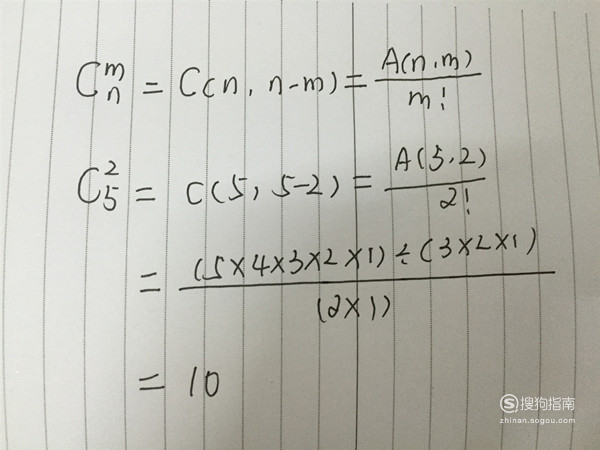 Cₙᵐ = C(n, n-m) = A(n,m)/m!
C₅² = C(5, 5-2) = A(5,2)/2!
= (5×4×3×2×1)÷(3×2×1)/(2×1)
= 10
S 搜狗指南
zhinan.sogou.com